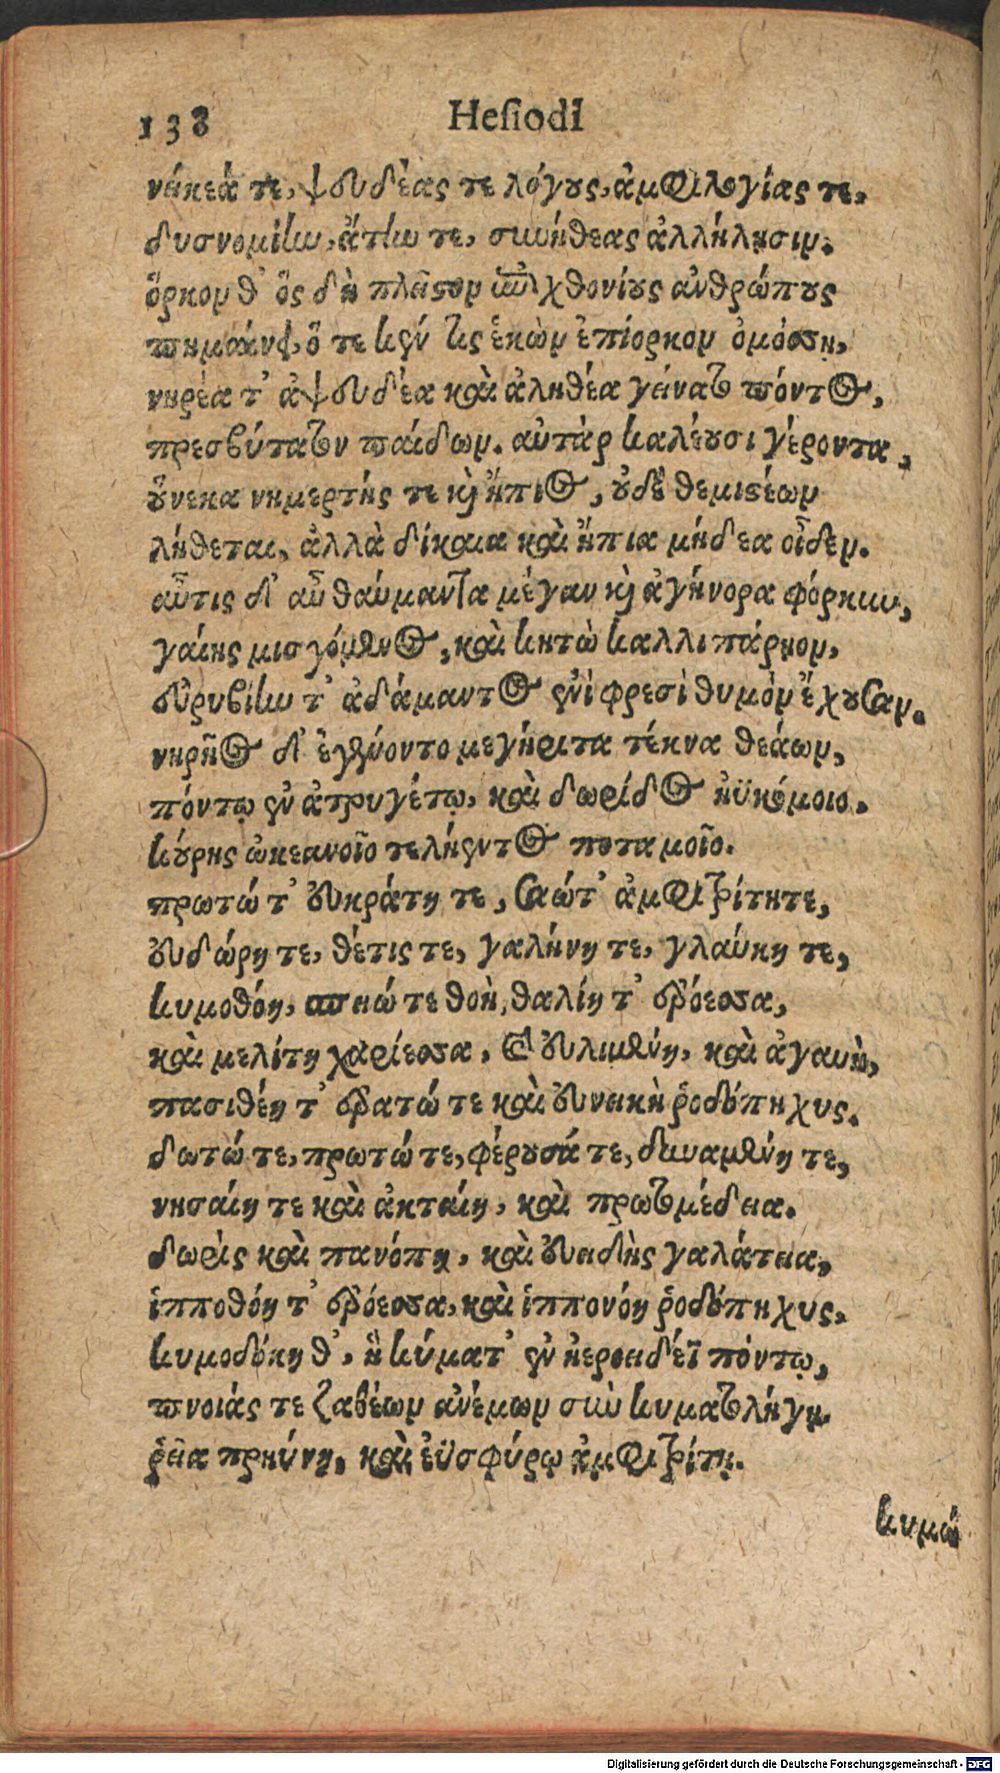 138 Hesiodi
νείκεά τε, ψευδέας τε λόγους, ἀμφιλογίας τε,
δυσνομίην, ἄτην τε, συνήθεας ἀλλήλησιν.
ὅρκον θ' ὃς δὴ πλεῖστον ἐπιχθονίους ἀνθρώπους
πημαίνει, ὅ τε κέν τις ἑκὼν ἐπίορκον ὀμόσσῃ,
νηρέα τ' ἀψευδέα καὶ ἀληθέα γείνατο πόντος,
πρεσβύτατον παίδων. αὐτὰρ καλέουσι γέροντα,
οὕνεκα νημερτής τε καὶ ἤπιος, οὐδὲ θεμιστέων
λήθεται, ἀλλὰ δίκαια καὶ ἤπια μήδεα οἶδεν.
αὖτις δ' αὖ θαύμαντα μέγαν καὶ ἀγήνορα φόρκυν,
γαίης μισγόμενος, καὶ κητὼ καλλιπάρηον,
εὐρυβίην τ' ἀδάμαντος ἐνὶ φρεσὶ θυμὸν ἔχουσαν.
νηρῆος δ' ἐγένοντο μεγήριτα τέκνα θεάων,
πόντῳ ἐν ἀτρυγέτῳ, καὶ δωρίδος ἠϋκόμοιο.
κούρης ὠκεανοῖο τελήεντος ποταμοῖο.
πρωτώ τ' εὐκράτη τε, σαώτ' ἀμφιτρίτητε,
εὐδώρη τε, θέτις τε, γαλήνη τε, γλαύκη τε,
κυμοθόη, σπειώ τε θοὴ, θαλίη τ' ἐρόεσσα,
καὶ μελίτη χαρίεσσα, καὶ εὐλιμένη, καὶ ἀγαυὴ,
πασιθέη τ' ἐρατώ τε καὶ εὐνεικὴ ῥοδόπηχυς.
δωτώ τε, πρωτώ τε, φέρουσά τε, δυναμένη τε,
νησαίη τε καὶ ἀκταίη, καὶ πρωτομέδεια.
δωρὶς καὶ πανόπη, καὶ εὐειδὴς γαλάτεια,
ἱπποθόη τ' ἐρόεσσα, καὶ ἱππονόη ῥοδόπηχυς,
κυμοδόκη θ', ἣ κύματ' ἐν ἠεροειδέϊ πόντῳ,
πνοιάς τε ζαθέων ἀνέμων σὺν κυματολήγῃ
ῥεῖα πρηΰνῃ, καὶ ἐϋσφύρῳ ἀμφιτρίτῃ.
κυμώ
Digitalisierung gefördert durch die Deutsche Forschungsgemeinschaft - DFG